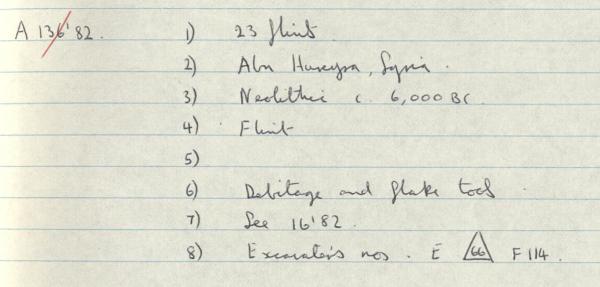 A 136'82. 1) 23 flint.
2) Abu Hureyra, Syria.
3) Neolithic c. 6,000 BC.
4) Flint
5)
6) Debitage and flake tools.
7) See 16'82.
8) Excavator's nos. E 66 F 114.